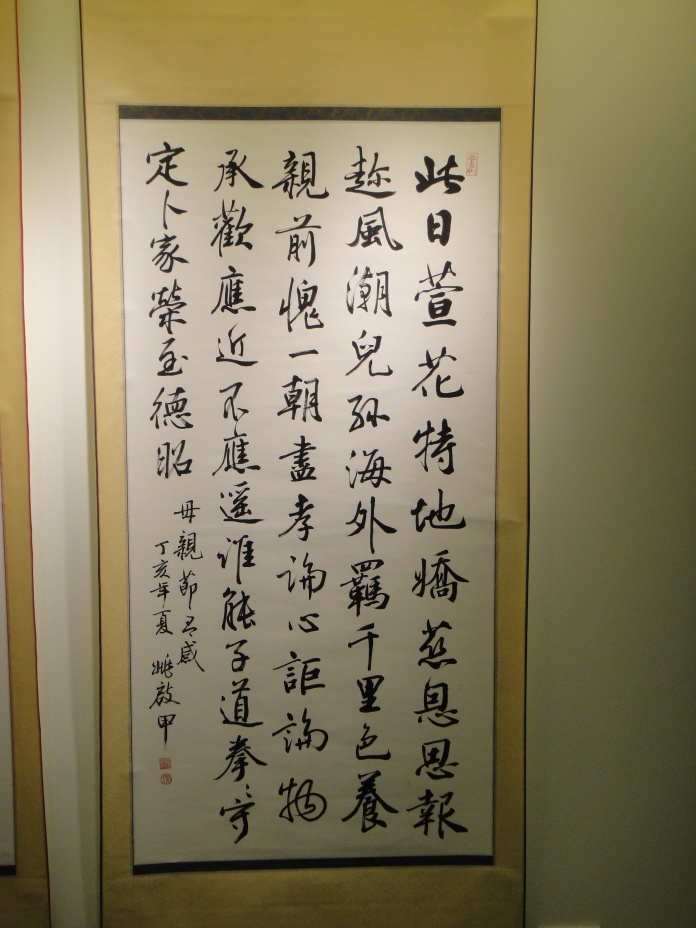 此日萱花特地嬌慈恩思報
趂風潮兒孫海外羈千里色養
親前愧一朝盡孝論心詎論物
承歡應近不應遥誰能子道拳〻守
定卜家榮至德昭
母親節有感
丁亥年夏 姚啟甲